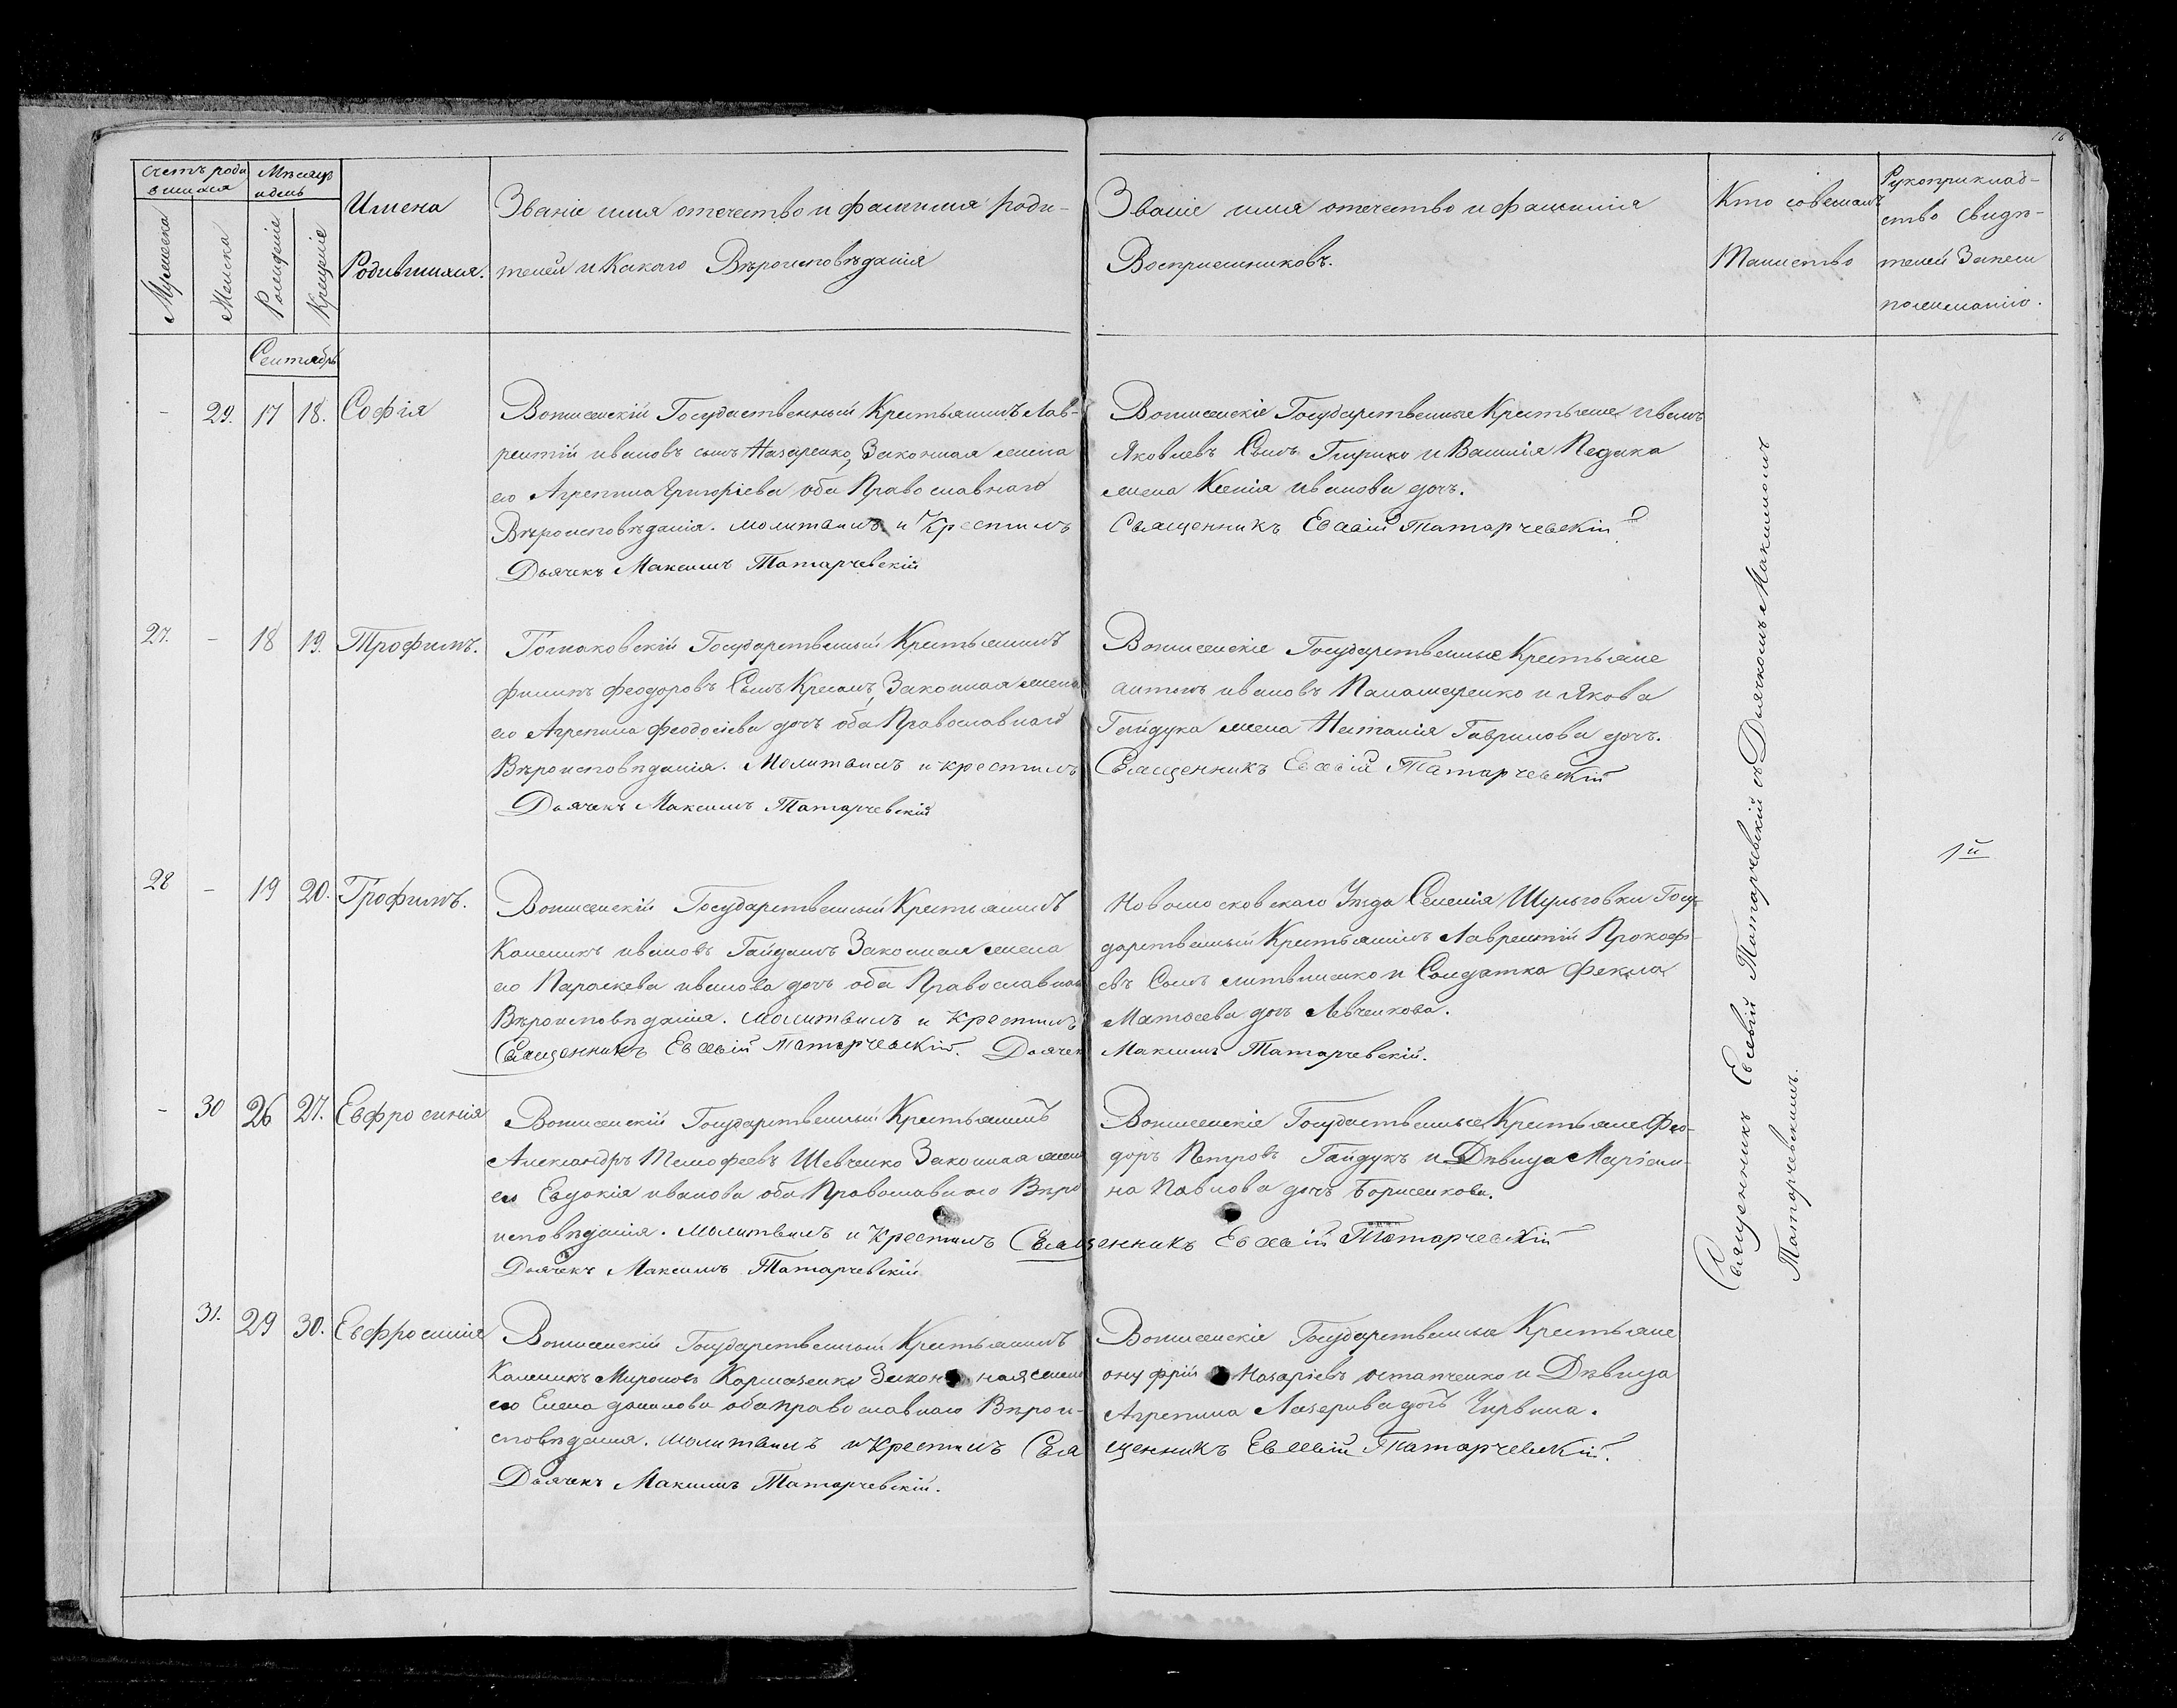 16
Счетъ роди
вшихся
Мѣсяцъ
и день
Мужеска
Женска
Рожденіе
Крещеніе
Имена
Родившихся.
Званіе имя отечество и фамилія роди-
телей и Какого Вѣроисповѣданія
Званіе имя отечество и фамилія
Воспріемниковъ.
Кто совешалъ
Таинство
Рукоприклад-
ство Свидѣ-
телей Записи
по желанію.
Сентябрь
- 29. 17 18. Софія
Государственный Крестьянинъ Лав-
рентій ивановъ сынъ Назаренко, Законная жена
его Агрепина Григоріева оба Православнаго
Вѣроисповѣданія. Молитвилъ и Крестилъ
Дьячекъ Максимъ Татарчевскій
Государственные Крестьяне иванъ
Яковлевъ Сынъ и Педака
жена Ксенія иванова дочь.
Священникъ Евсевій Татарчевскій
27. - 18 19. Трофимъ.
Государственный Крестьянинъ
филипъ феодоровъ Сынъ Законная жена
его Агрепина феодосіева дочь оба Православнаго
Вѣроисповѣданія. Молитвилъ и крестилъ
Дьячекъ Максимъ Татарчевскій
Государственные Крестьяне
антонъ ивановъ и Якова
Гайдука жена Наталія Гаврилова дочь.
Священникъ Евсевій Татарчевскій
28 - 19 20. Трофимъ.
Государственный Крестьянинъ
Каленикъ ивановъ Законная жена
его Параскева иванова дочь оба Православнаго
Вѣроисповѣданія. Молитвилъ и Крестилъ
Священникъ Евсевій Татарчевскій. Дьячекъ
Новомосковскаго Уѣзда Селенія Шульговки Госу-
дарственный Крестьянинъ Лаврентій Прокофі-
евъ Сынъ литвиненко и Солдатка Фекла
Матвеева дочь Левченкова.
Максимъ Татарчевскій.
1й
- 30 26 27. Евфросинія
Государственный Крестьянинъ
Александръ Темофеевъ Шевченко Законная жена
его Евдокія иванова оба Православнаго Вѣро
исповѣданія. Молитвилъ и Крестилъ Свящ
Дьячекъ Максимъ Татарчевскій
Государственные Крестьяне Фео-
доръ Петровъ Гайдукъ и Дѣвица Маріам-
на Павлова дочь Борисенкова.
енникъ Евсевій Татарчевскій
31. 29 30. Евфросинія
Государственный Крестьянинъ
Каленикъ Мироновъ Кармазенко Законная жена
его Елена данилова оба православнаго Вѣрои-
сповѣданія. Молитвилъ и Крестилъ Свя
Дьячекъ Максимъ Татарчевскій.
Государственные Крестьяне
онуфрій Назаріевъ остапченко и Дѣвица
Агрепина Лазерива дочь
щенникъ Евсевій Татарчевскій.
Священникъ Евсевій Татарчевскій съ Дьячкомъ Максимомъ
Татарчевскимъ.